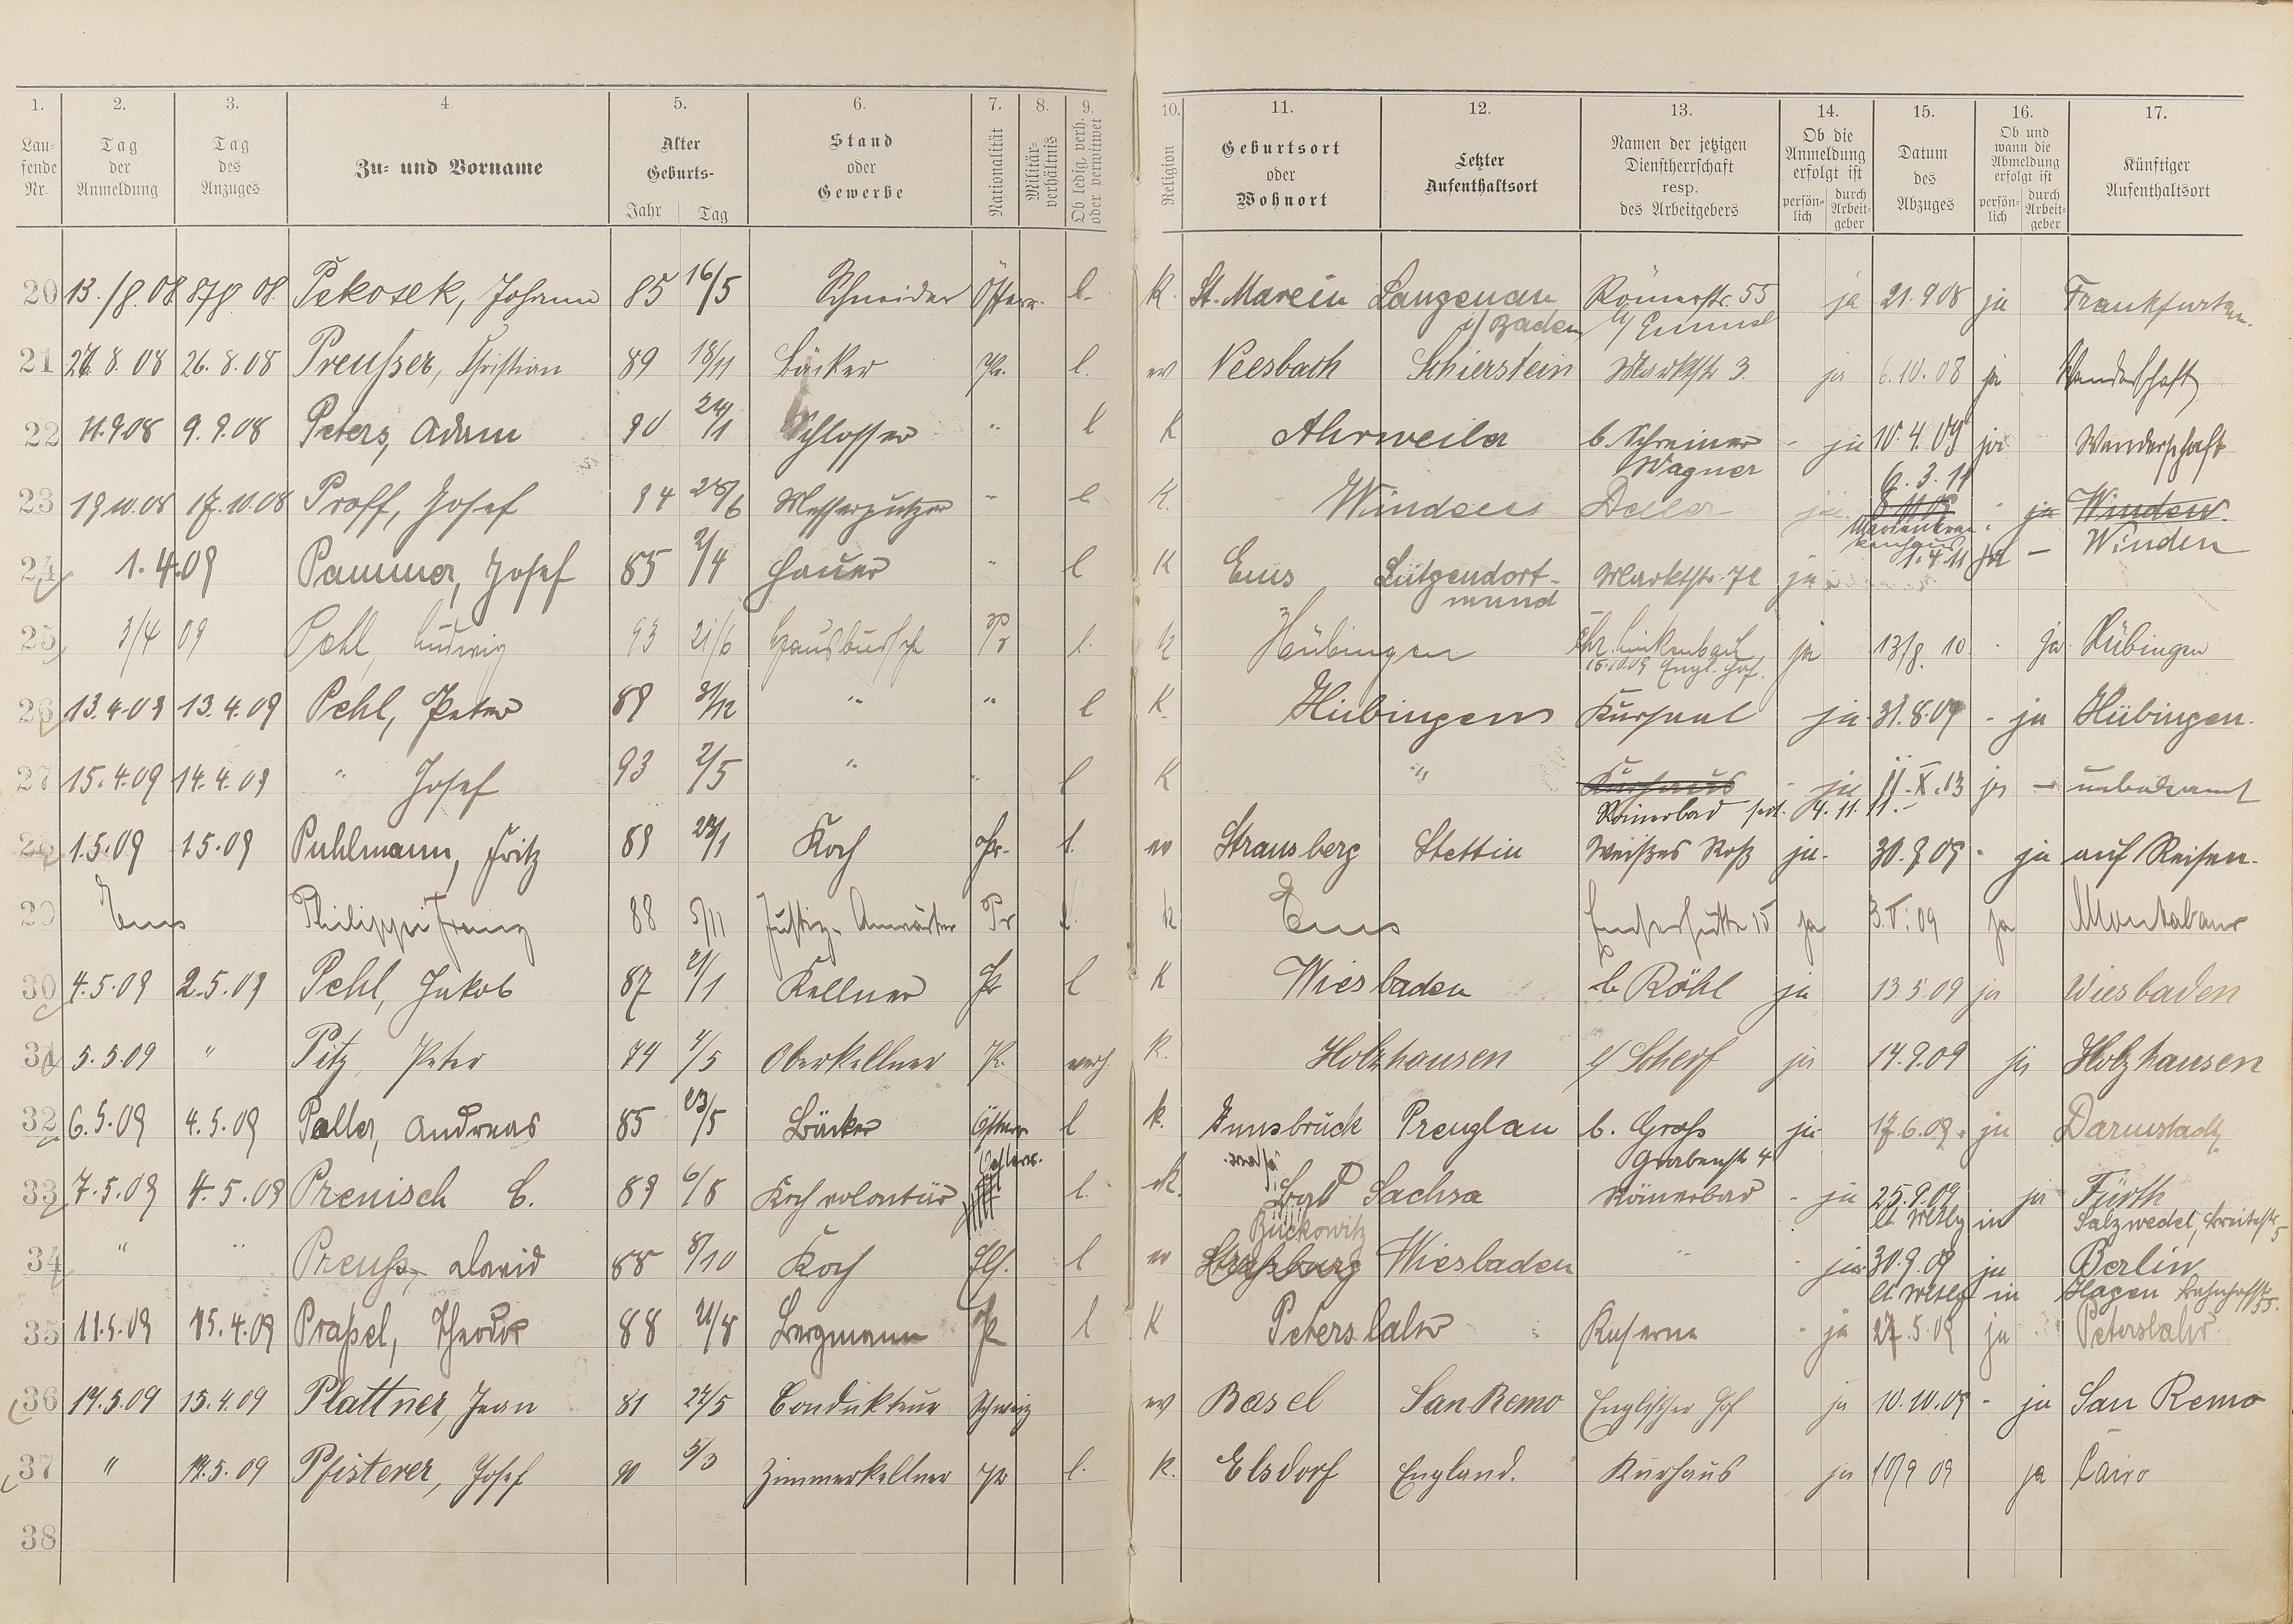 1. 2. 3. 4. 5. 6. 7. 8. 9. 10. 11. 12. 13. 14. 15. 16. 17.
Lau-fende Nr. Tag der Anmeldung Tag des Anzuges Zu- und Vorname Alter Geburts- Jahr Tag Stand oder Gewerbe Nationalität Militär-verhältnis Ob ledig, verh. oder verwitwet Religion Geburtsort oder Wohnort Letzter Aufenthaltsort Namen der jetzigen Dienstherrschaft resp. des Arbeitgebers Ob die Anmeldung erfolgt ist persön-lich durch Arbeit-geber Datum des Abzuges Ob und wann die Abmeldung erfolgt ist persön-lich durch Arbeit-geber Künftiger Aufenthaltsort
20 13./8.08 8/8.08. Pekosek, Johann 85 16/5 Schneider Österr. l. K. St. Marein Langenau Römerstr. 55 ja 21.9 08 ja Frankfurt
i/ Baden
21 8. 08 26. 8. 08 Preußer, Christian 89 18/11 Bäcker Pr. l. ev Neesbach Schierstein Marktstr 3. ja 6.10.08 ja Wanderschaft
22 11.9 08 9. 9. 08 Peters, Adam 90 24/1 Schlosser " l K Ahrweiler b. Schreiner - ja 10. 4. 09 ja Wanderschaft
Wagner 6. 3. 11
23 19.10.08 17.10.08 Proff, Josef 94 Messerputzer " l K. Winden ja Winden.
24 1. 4.09 Pammer, Josef 85 2/4 Hauer " l K Ems Lütgendort- Marktstr. 71 ja 1.4.11 ja — Winden
mund
25 3/4 09 Pehl, Ludwig 93 21/6 Hausbursch Pr l. K Hübingen Chr. Linkenbach ja 13/8. 10 - ja Hübingen
15.10.09 Engl. Hof.
26 13.4.09 13.4.09 Pehl, Peter 89 31/12 " " l K. Hübingen Kursaal ja 31.8.09 - ja Hübingen.
27 15.4.09 14.4.09 " Josef 93 2/5 " " l K " Kurhaus - ja 11.X.13 ja — unbekannt
Römerbad seit 4.11.11.-
28 1.5.09 1.5.09 Puhlmann, Fritz 89 23/1 Koch Pr. l. ev Strausberg Stettin Weißes Roß ja. 30.9 09 - ja auf Reisen.
29 Ems Philippi Franz 88 5/11 Justiz-Anwärter Pr l. K Ems Emserhütte 15 ja 3.V.09 ja Montabaur
30 4.5.09 2.5.09 Pehl, Jakob 87 21/1 Kellner Pr l K Wiesbaden b Röhl ja 13.5.09 ja Wiesbaden
31 5.5.09 " Pitz Peter 74 4/5 Oberkellner Pr. verh. K. Holzhausen b/ Scherf ja 14.9.09 ja Holzhausen
32 6.5.09 4.5.09 Paller, Andreas 85 23/5 Bäcker Österr l K. Innsbruck Prenzlau b. Groß ja 17.6.09. ja Darmstadt
Österr. Grabenstr 4
33 7.5.09 4.5.09 Prenisch C. 89 6/8 Kochvolontär l. K. Bad Sachsa Römerbad - ja 25.9.09 ja Fürth
Bückowitz lt Mtlg in Salzwedel, Breitestr. 5
34 " " Preuß, David 88 8/10 Koch Els. l ev Straßburg Wiesbaden " - ja 30.9.09 ja Berlin
lt Mtlg in Hagen Bahnhofstr 55.
35 11.5.09 15.4.09 Praßel, Theodor 88 21/8 Bergmann Pr l K Peterslahr Kaserne - ja 27.5.09 ja Peterslahr
36 14.5.09 15.4.09 Plattner, Jean 81 24/5 Condukteur Schweiz ev Basel San Remo Englischer Hof ja 10.10.09 - ja San Remo
37 " 14.5.09 Pfisterer, Josef 90 5/3 Zimmerkellner Pr l. K. Elsdorf England. Kurhaus ja 10/9 09 ja Cairo
38